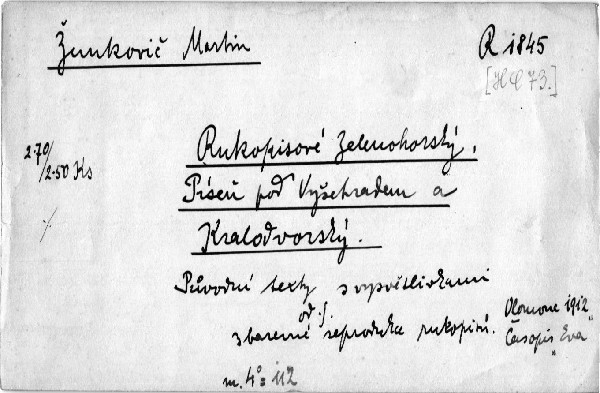 Žunkovič Martin
R 1845
[HC 73.]
2·70/2·50 Ks
Rukopisové Zelenohorský,
Píseň pod Vyšehradem a
Kralodvorský.
Původní texty s vysvětlivkami
od
zbarvené reprodukce rukopisů.
Olomouc 1912
Časopis „Eva"
m. 4° = 112